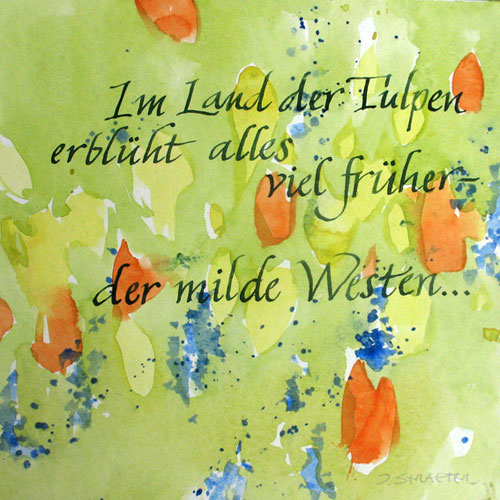 Im Land der Tulpen
erblüht alles
viel früher–
der milde Westen...